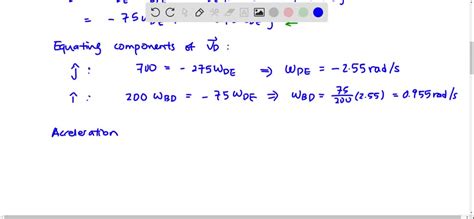 = - 75 ω_DE
Equating components of v⃗_D :
ĵ : 700 = - 275 ω_DE ⇒ ω_DE = - 2.55 rad/s
î : 200 ω_BD = - 75 ω_DE ⇒ ω_BD = 75/200 (2.55) = 0.955 rad/s
Acceleration